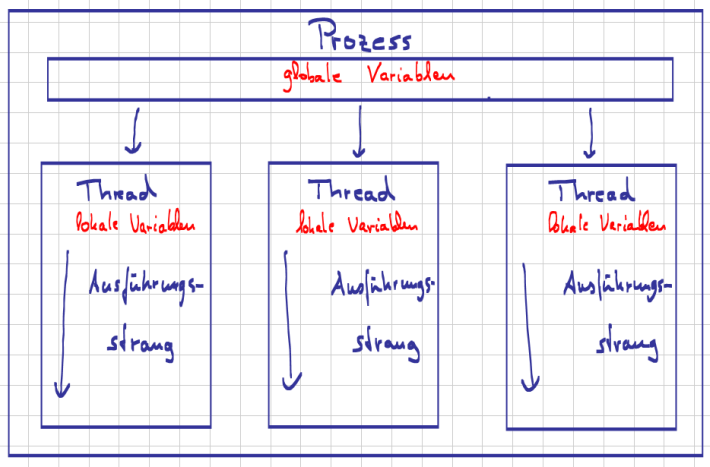 Prozess
globale Variablen
Thread
lokale Variablen
Ausführungs-
strang
Thread
lokale Variablen
Ausführungs-
strang
Thread
lokale Variablen
Ausführungs-
strang